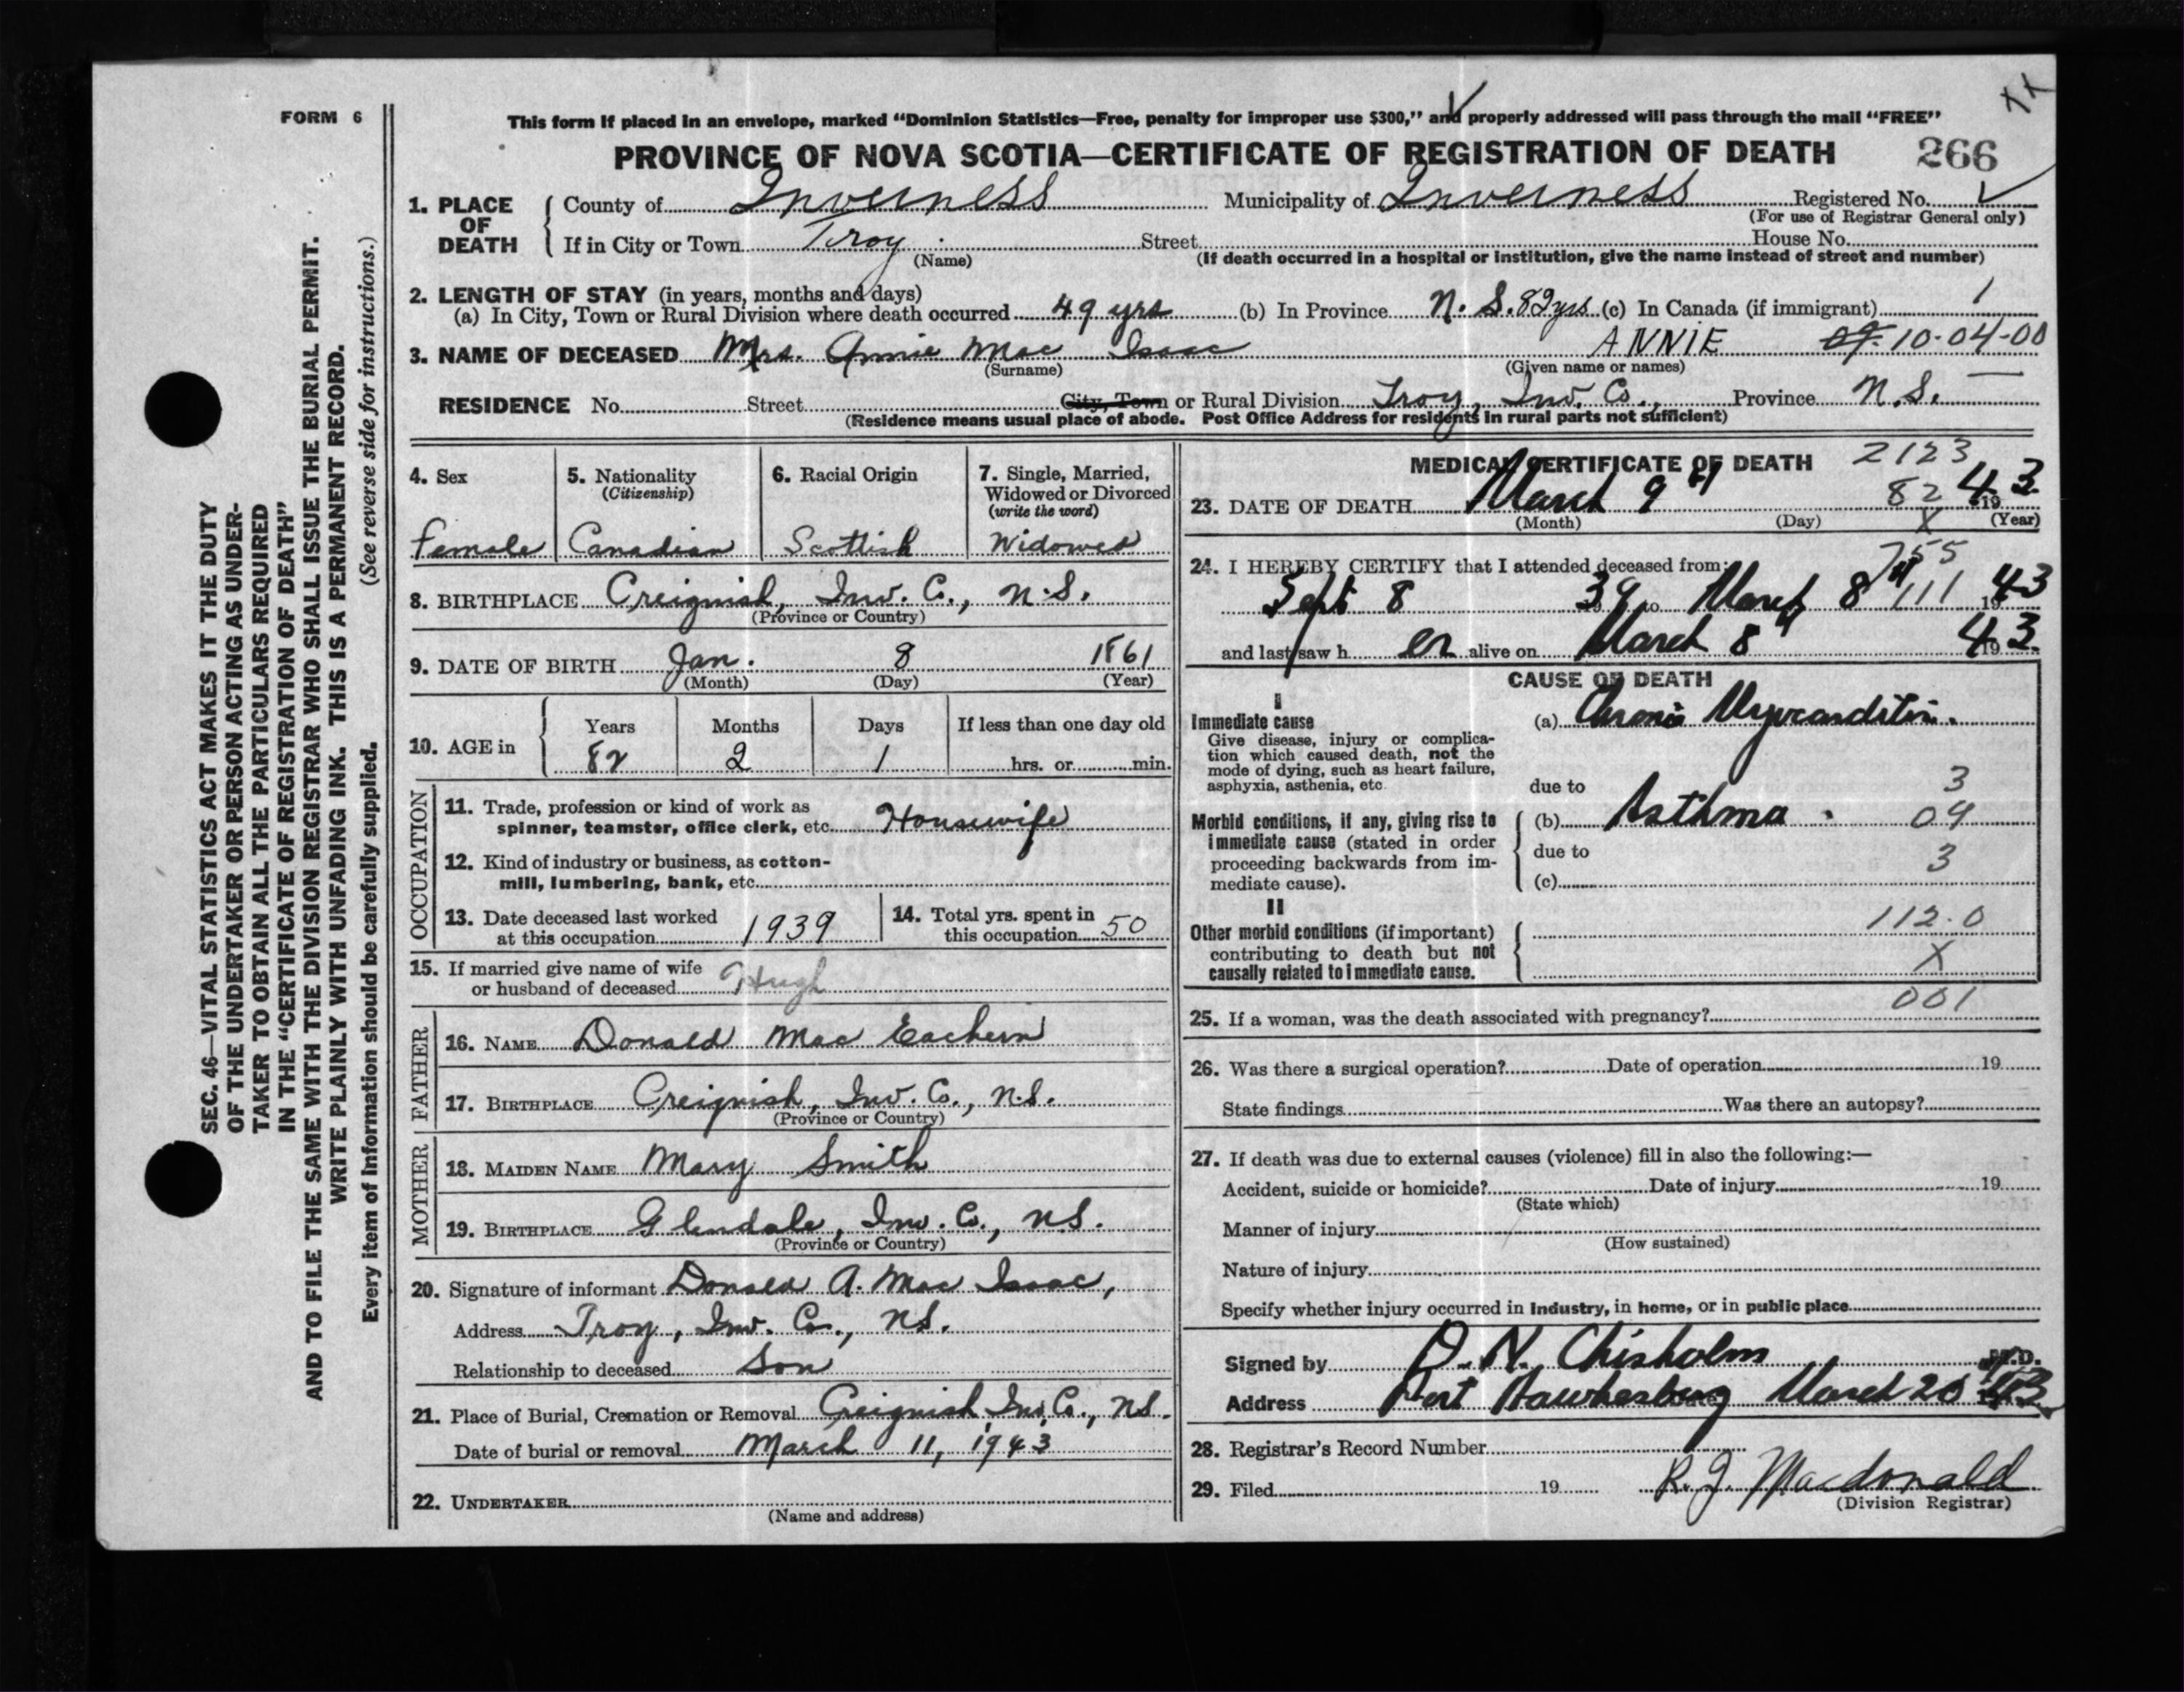 FORM 6
SEC. 46—VITAL STATISTICS ACT MAKES IT THE DUTY
OF THE UNDERTAKER OR PERSON ACTING AS UNDER-
TAKER TO OBTAIN ALL THE PARTICULARS REQUIRED
IN THE "CERTIFICATE OF REGISTRATION OF DEATH"
AND TO FILE THE SAME WITH THE DIVISION REGISTRAR WHO SHALL ISSUE THE BURIAL PERMIT.
WRITE PLAINLY WITH UNFADING INK. THIS IS A PERMANENT RECORD.
Every item of information should be carefully supplied. (See reverse side for instructions.)
XX
This form if placed in an envelope, marked "Dominion Statistics—Free, penalty for improper use $300," and properly addressed will pass through the mail "FREE"
PROVINCE OF NOVA SCOTIA—CERTIFICATE OF REGISTRATION OF DEATH 266
1. PLACE OF DEATH County of Inverness Municipality of Inverness Registered No.
(For use of Registrar General only)
If in City or Town Troy Street House No.
(Name) (If death occurred in a hospital or institution, give the name instead of street and number)
2. LENGTH OF STAY (in years, months and days)
(a) In City, Town or Rural Division where death occurred 49 yrs (b) In Province N.S. 82 yrs (c) In Canada (if immigrant) 1
3. NAME OF DECEASED Mrs. Annie Mac Isaac ANNIE 10-04-00
(Surname) (Given name or names)
RESIDENCE No. Street City, Town or Rural Division Troy, Inv. Co., Province N.S.
(Residence means usual place of abode. Post Office Address for residents in rural parts not sufficient)
4. Sex 5. Nationality (Citizenship) 6. Racial Origin 7. Single, Married, Widowed or Divorced (write the word)
Female Canadian Scottish Widowed
8. BIRTHPLACE Creignish, Inv. Co., N.S.
(Province or Country)
9. DATE OF BIRTH Jan. 8 1861
(Month) (Day) (Year)
10. AGE in Years Months Days If less than one day old
82 2 1 hrs. or min.
OCCUPATION
11. Trade, profession or kind of work as
spinner, teamster, office clerk, etc. Housewife
12. Kind of industry or business, as cotton-
mill, lumbering, bank, etc.
13. Date deceased last worked
at this occupation 1939
14. Total yrs. spent in
this occupation 50
15. If married give name of wife
or husband of deceased Hugh
FATHER
16. NAME Donald Mac Eachern
17. BIRTHPLACE Creignish, Inv. Co., N.S.
(Province or Country)
MOTHER
18. MAIDEN NAME Mary Smith
19. BIRTHPLACE Glendale, Inv. Co., N.S.
(Province or Country)
20. Signature of informant Donald A. Mac Isaac,
Address Troy, Inv. Co., N.S.
Relationship to deceased Son
21. Place of Burial, Cremation or Removal Creignish, Inv. Co., N.S.
Date of burial or removal March 11, 1943
22. UNDERTAKER
(Name and address)
MEDICAL CERTIFICATE OF DEATH 2123
23. DATE OF DEATH March 9th 82 1943
(Month) (Day) X (Year)
755
24. I HEREBY CERTIFY that I attended deceased from:
Sept 8 39 to March 8th 111 1943
and last saw h er alive on March 8th 1943
CAUSE OF DEATH
I
Immediate cause (a) Chronic Myocarditis.
Give disease, injury or complica-
tion which caused death, not the
mode of dying, such as heart failure,
asphyxia, asthenia, etc. due to 3
Morbid conditions, if any, giving rise to (b) Asthma. 04
immediate cause (stated in order due to
proceeding backwards from im- 3
mediate cause). (c)
II
Other morbid conditions (if important) 112.0
contributing to death but not
causally related to immediate cause. X
001
25. If a woman, was the death associated with pregnancy?
26. Was there a surgical operation? Date of operation 19
State findings Was there an autopsy?
27. If death was due to external causes (violence) fill in also the following:—
Accident, suicide or homicide? Date of injury 19
(State which)
Manner of injury
(How sustained)
Nature of injury
Specify whether injury occurred in industry, in home, or in public place
Signed by D. N. Chisholm M.D.
Address Port Hawkesbury March 20 1943
28. Registrar's Record Number
29. Filed 19 R. J. Macdonald
(Division Registrar)